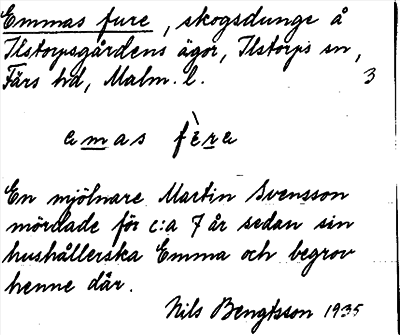 Emmas fure, skogsdunge å
Ilstorpsgårdens ägor, Ilstorps sn,
Färs hd, Malm. l.
3
emas fère
En mjölnare Martin Svensson
mördade för c:a 7 år sedan sin
hushållerska Emma och begrov
henne där.
Nils Bengtsson 1935